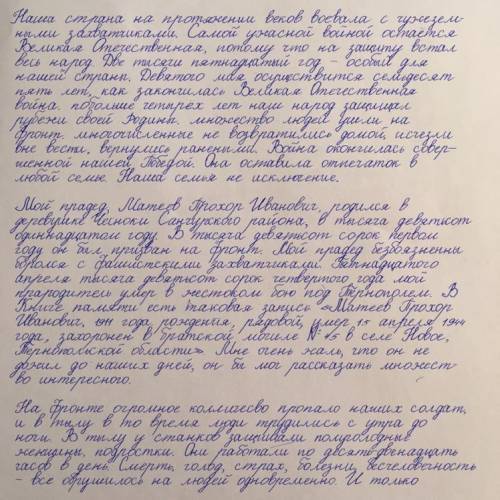 Наша страна на протяжении веков воевала с чужезем-
ными захватчиками. Самой ужасной войной остается
Великая Отечественная, потому что на защиту встал
весь народ. Две тысячи пятнадцатый год - особый для
нашей страны. Девятого мая осуществится семьдесят
пять лет, как закончилась Великая Отечественная
война. побольше четырех лет наш народ защищал
рубежи своей Родины. множество людей ушли на
фронт. многочисленные не возвратились домой, исчезли
вне вести, вернулись ранеными. Война окончилась совер-
шенной нашей Победой. Она оставила отпечаток в
любой семье. Наша семья не исключение.
Мой прадед, Матеев Прохор Иванович, родился в
деревушке Чесноки Санчурского района, в тысяча девятисот
одиннадцатом году. В тысяча девятисот сорок первом
году он был призван на фронт. Мой прадед безбоязненны
боролся с фашистскими захватчиками. Пятнадцатого
апреля тысяча девятисот сорок четвертого года мой
прародитель умер в жестоком бою под Тернополем. В
Книге памяти есть таковая запись «Матеев Прохор
Иванович, 1911 года рождения, рядовой, умер 15 апреля 1944
года, захоронен в братской могиле №45 в селе Новое,
Тернопольской области» Мне очень жаль, что он не
дожил до наших дней, он бы мог рассказать множест-
во интересного.
На фронте огромное количесво пропало наших солдат,
и в тылу в то время люди трудились с утра до
ночи. В тылу у станков защищали полуголодные
женщины, подростки. Они работали по десять-двенадцать
часов в день. Смерть, голод, страх, болезни, бесчеловечность
- все обрушилось на людей одновременно. И только